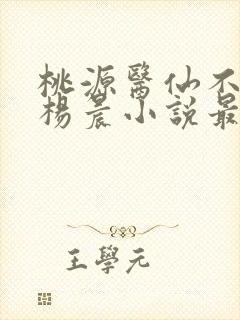 桃源醫仙不
楊晨小說最
王學元